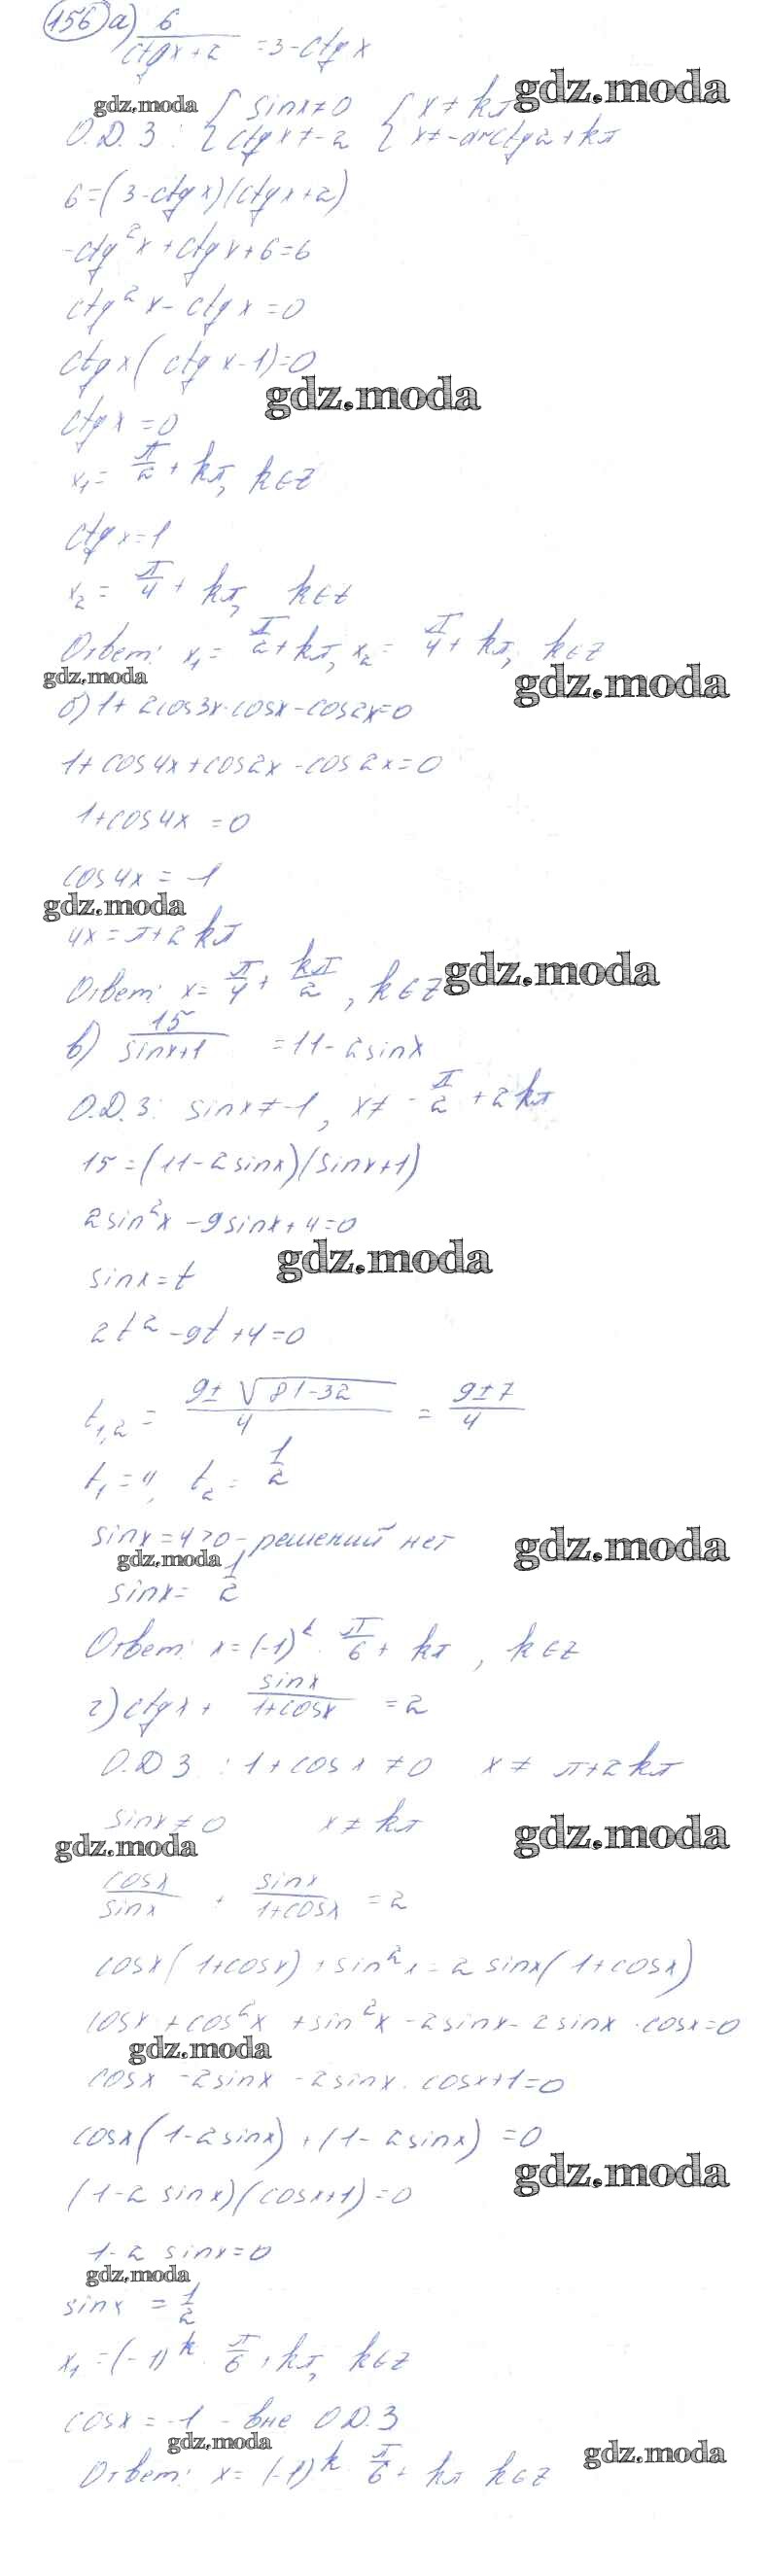 156 а) 6/(ctgx+2) = 3-ctgx
gdz.moda
gdz.moda
О.Д.З: { sinx≠0 { x≠kπ
ctgx≠-2 x≠-arcctg2+kπ
6=(3-ctgx)(ctgx+2)
-ctg²x+ctgx+6=6
ctg²x-ctgx=0
ctgx(ctgx-1)=0
gdz.moda
ctgx=0
x₁=π/2+kπ, k∈z
ctgx=1
x₂=π/4+kπ, k∈z
Ответ: x₁=π/2+kπ, x₂=π/4+kπ, k∈z
gdz.moda
gdz.moda
б) 1+2cos3x·cosx-cos2x=0
1+cos4x+cos2x-cos2x=0
1+cos4x=0
cos4x=-1
gdz.moda
4x=π+2kπ
Ответ: x=π/4+kπ/2, k∈z
gdz.moda
в) 15/(sinx+1) =11-2sinx
О.Д.З: sinx≠-1, x≠-π/2+2kπ
15=(11-2sinx)(sinx+1)
2sin²x-9sinx+4=0
gdz.moda
sinx=t
2t²-9t+4=0
t₁,₂=(9±√(81-32))/4=(9±7)/4
t₁=4, t₂=1/2
sinx=4>0-решений нет
gdz.moda
gdz.moda
sinx=1/2
Ответ: x=(-1)^k·π/6+kπ, k∈z
г) ctgx+sinx/(1+cosx)=2
О.Д.З: 1+cosx≠0 x≠π+2kπ
sinx≠0 x≠kπ
gdz.moda
gdz.moda
cosx/sinx+sinx/(1+cosx)=2
cosx(1+cosx)+sin²x=2sinx(1+cosx)
cosx+cos²x+sin²x-2sinx-2sinx·cosx=0
gdz.moda
cosx-2sinx-2sinx·cosx+1=0
cosx(1-2sinx)+(1-2sinx)=0
gdz.moda
(1-2sinx)(cosx+1)=0
1-2sinx=0
gdz.moda
sinx=1/2
x₁=(-1)^k·π/6+kπ, k∈z
cosx=-1-вне О.Д.З
gdz.moda
gdz.moda
Ответ: x=(-1)^k π/6+kπ k∈z